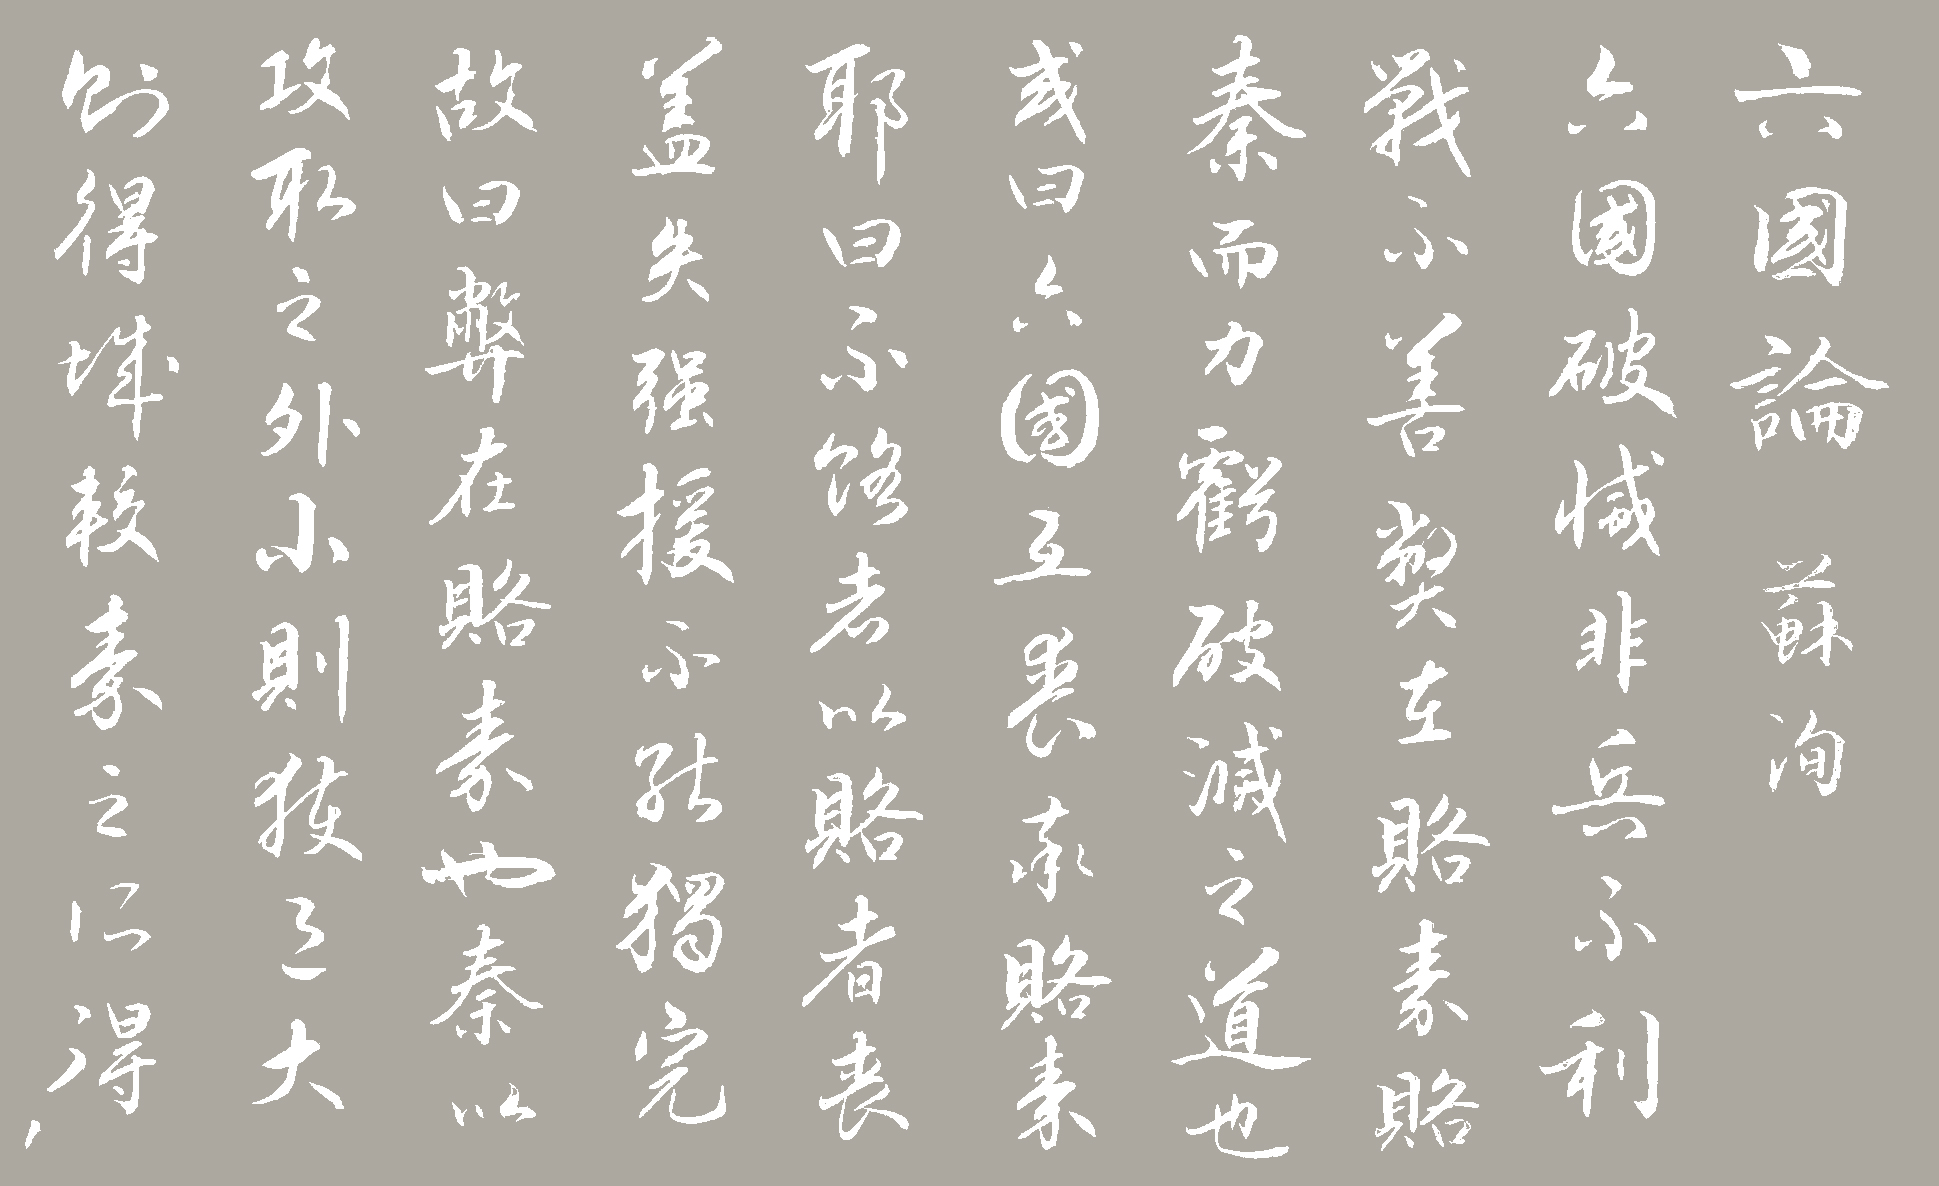 六國論 蘇洵
六國破滅非兵不利
戰不善獘在賂秦賂
秦而力虧破滅之道也
或曰六國互喪率賂秦
耶曰不賂者以賂者喪
盖失强援不能獨完
故曰弊在賂秦也秦以
攻取之外小則獲邑大
則得城較秦之所得